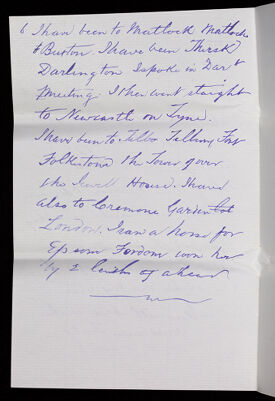 6 I have been to Matlock Matlock
& Buxton. I have been Thirsk
Darlington I spoke in Dar t
meeting. I then went straight
to Newcastle on Tyne.
I have been to Tilbury Fort
Folkstone the Tower over
the House. I have
also to Cremone Garden
London. I ran a horse for
Epsom won her
by 2 of a head